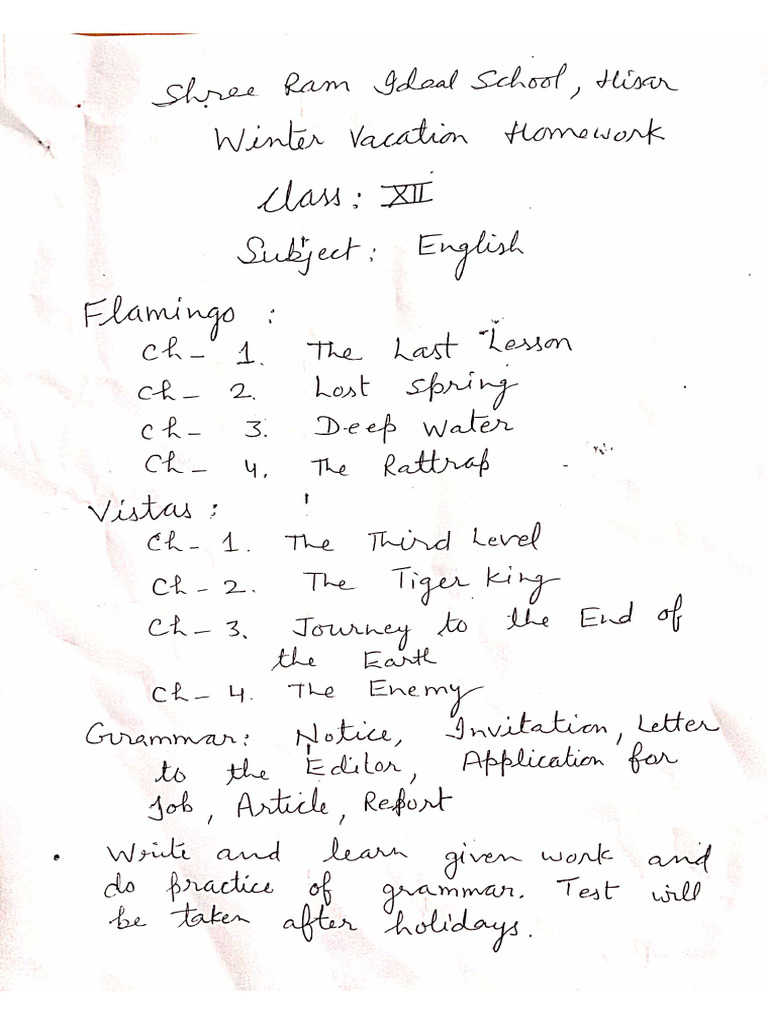 Shree Ram Ideal School, Hisar
Winter Vacation Homework
Class: XII
Subject: English
Flamingo :
Ch - 1. The Last Lesson
Ch - 2. Lost Spring
Ch - 3. Deep Water
Ch - 4. The Rattrap
Vistas :
Ch - 1. The Third Level
Ch - 2. The Tiger King
Ch - 3. Journey to the End of
the Earth
Ch - 4. The Enemy
Grammar: Notice, Invitation, Letter
to the Editor, Application for
Job, Article, Report
. Write and learn given work and
do practice of grammar. Test will
be taken after holidays.